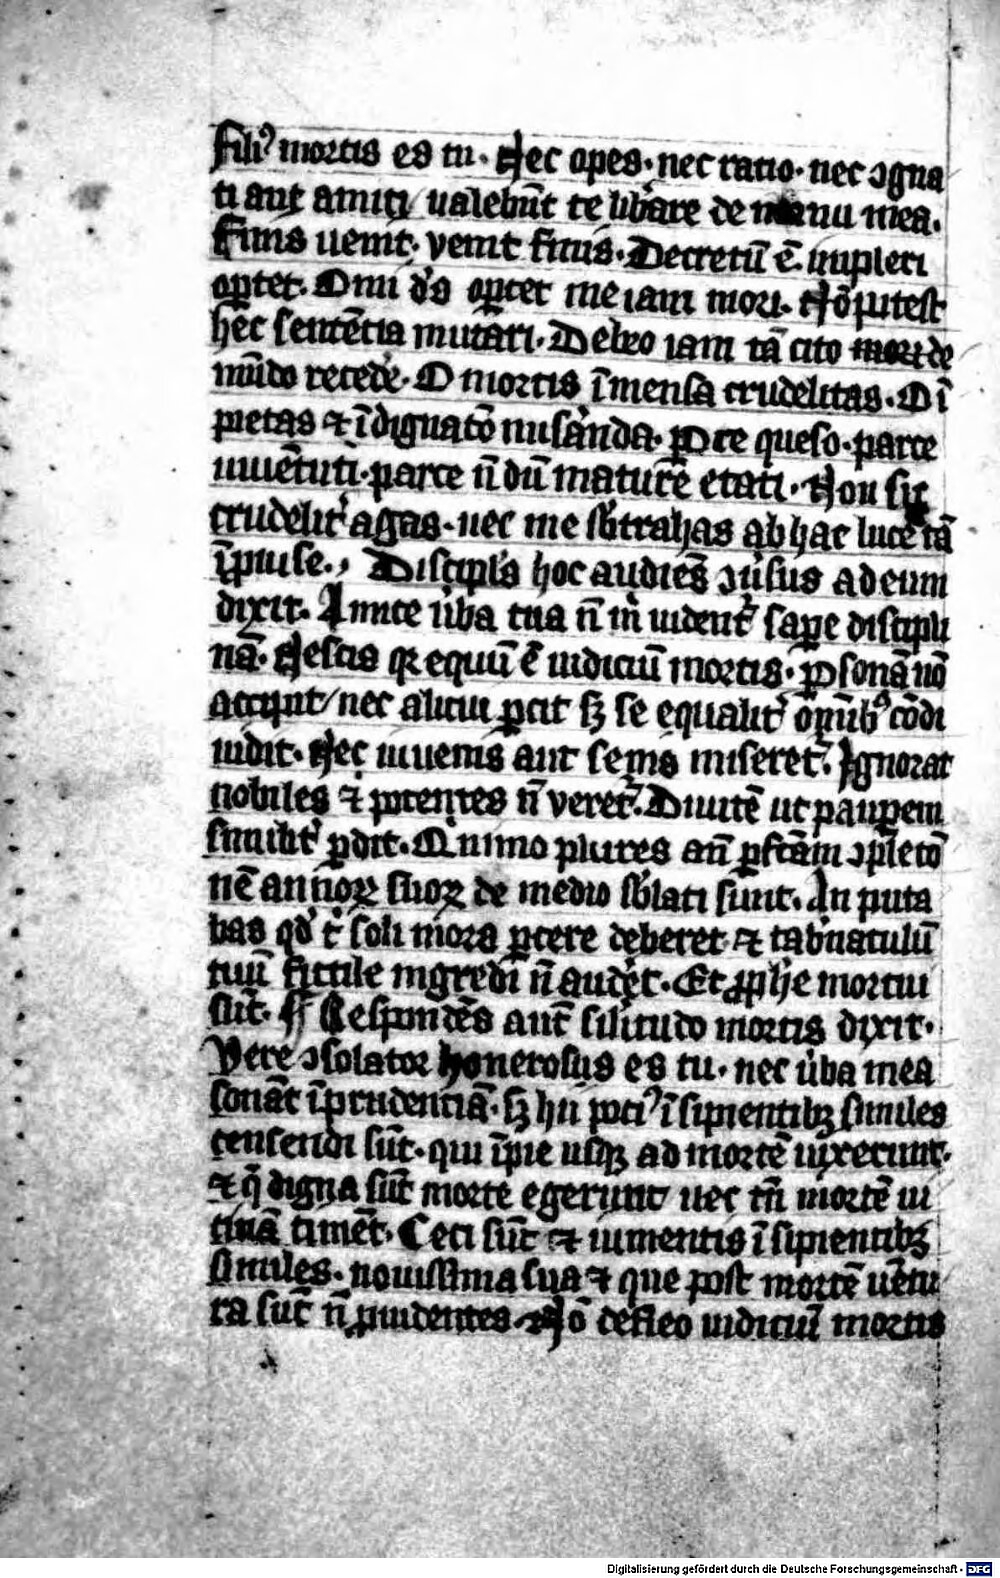 Fili⁹ mortis es tu. Nec opes. nec ratio. nec ɔgna
ti aut amici ualebūt te lib̓are de manu mea.
Finis uenit. venit finis. Decretū ē. impleri
oꝑtet. O mi d̓s oꝑtet me iam mori. Nō potest
hec sentētia mutari. Debeo iam tā cito de
mūdo reced̓e. O mortis īmensa crudelitas. O ī
pietas ⁊ īdignatō nusādā. Pce queso. parce
iuuētuti. parce n̄ dū mature etati. Non sic
crudelit̓ agas. nec me sb̓trahas ab hac luce tā
īpuise. Discipl̓s hoc audiēs ɔu̓sus ad eum
dixit. Amice u̓ba tua n̄ m̓ uident̓ sape discipli
nā. Nescis qꝛ equū ē iudiciū mortis. ꝑsonā nō
accipit nec alicui ꝑcit sꝫ se equalit̓ om̄ib⁹ cōdi
uidit. Nec iuuenis aut senis miseret̓. Ignorat
nobiles ⁊ potentes n̄ veret̓. Diuitē ut pauꝑem
similit̓ ꝑdit. Quinimo plures an̄ ꝑfc̄am ɔpletō
nē annoꝝ suoꝝ de medio sb̓lati sunt. An puta
bas qd̓ t̓ soli mors ꝑcere deberet ⁊ tab̓naculū
tuū fictile ingredi n̄ audet. Et ꝓphe mortui
sūt. Respondēs aūt silitudo mortis dixit.
Vere ɔsolator honerosus es tu. nec u̓ba mea
sonāt īprudenciā. sꝫ hii poci⁹ īsipientibꝫ similes
censendi sūt. qui īpie usqꝫ ad mortē uixerunt.
⁊ q̄ digna sūt morte egerunt nec tn̄ mortē ui
cinā timēt. Ceci sūt ⁊ iumentis īsipientibꝫ
similes. nouissima sua ⁊ que post mortē uētu
ra sūt n̄ ꝓuidentes. Nō defleo iudiciū mortis
Digitalisierung gefördert durch die Deutsche Forschungsgemeinschaft - DFG